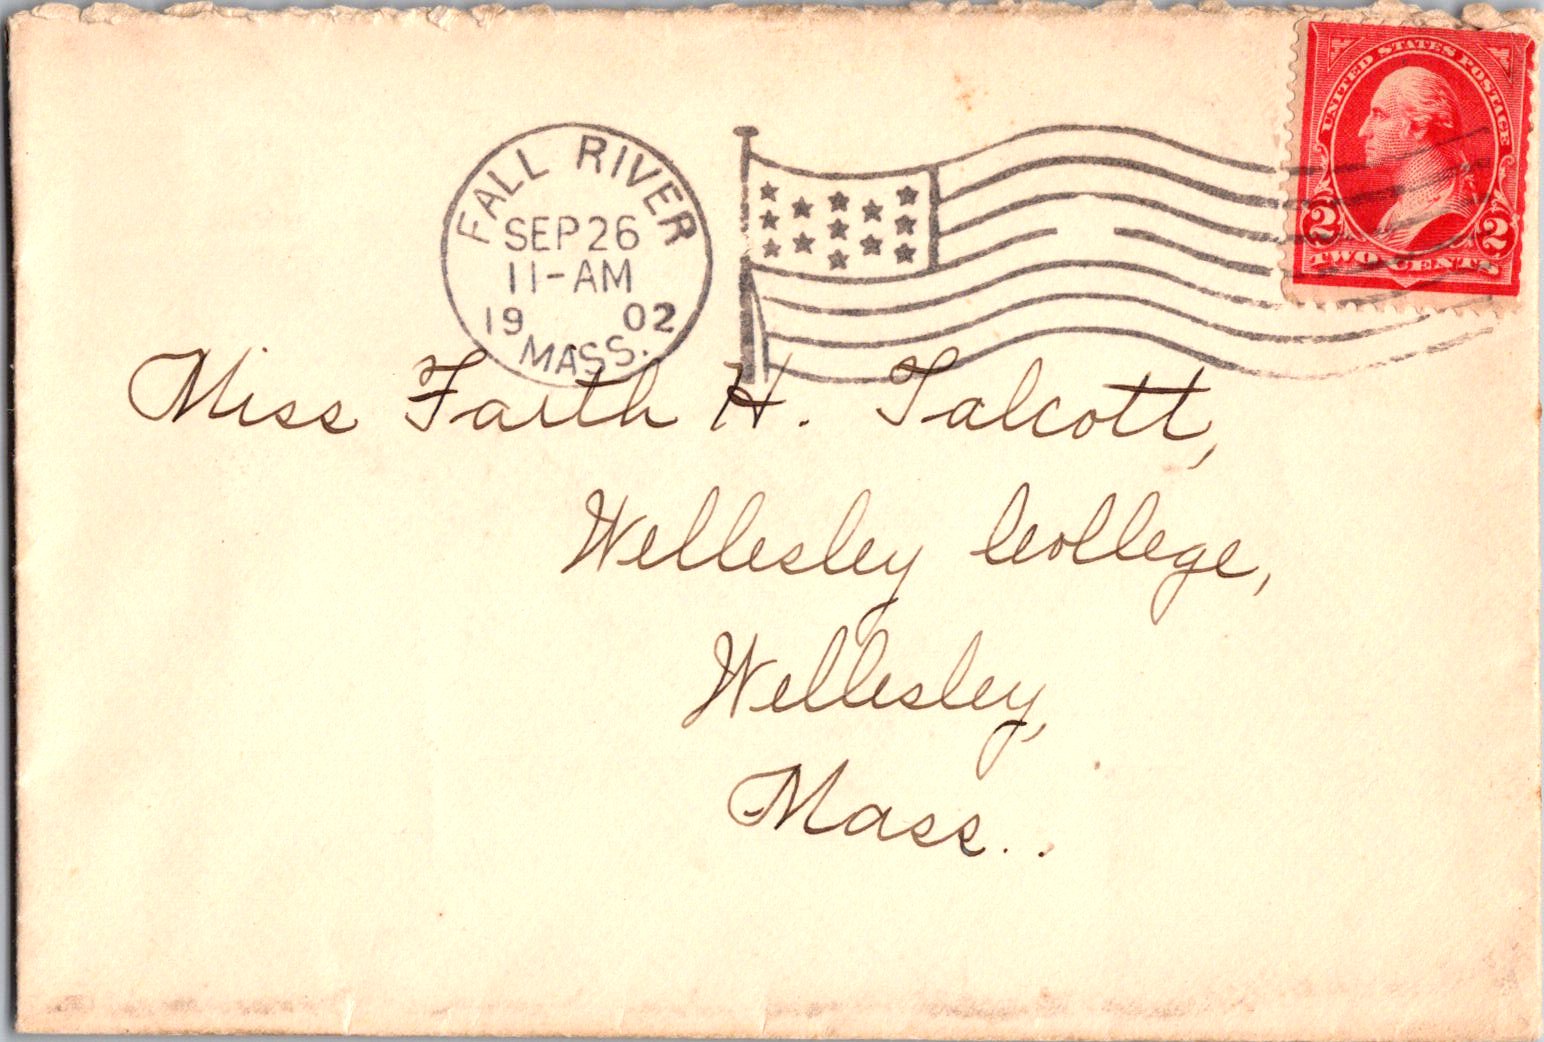 UNITED STATES POSTAGE
2 2
TWO CENTS
FALL RIVER
SEP 26
11-AM
19 02
MASS.
Miss Faith H. Talcott,
Wellesley College,
Wellesley,
Mass..